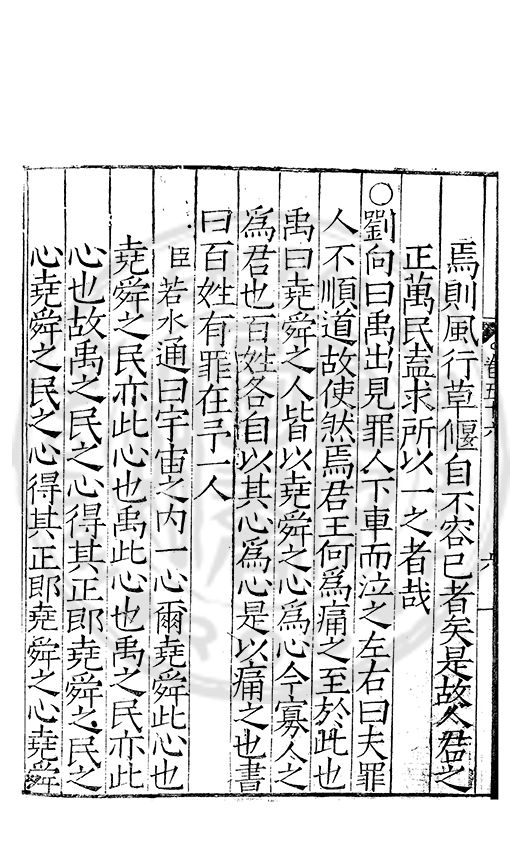 焉則風行草偃自不容已者矣是故人君之
正萬民盍求所以一之者哉
○劉向曰禹出見罪人下車而泣之左右曰夫罪
人不順道故使然焉君王何爲痛之至於此也
禹曰堯舜之人皆以堯舜之心爲心今寡人之
爲君也百姓各自以其心爲心是以痛之也書
曰百姓有罪在予一人
臣若水通曰宇宙之内一心爾堯舜此心也
堯舜之民亦此心也禹此心也禹之民亦此
心也故禹之民之心得其正即堯舜之民之
心堯舜之民之心得其正即堯舜之心堯舜